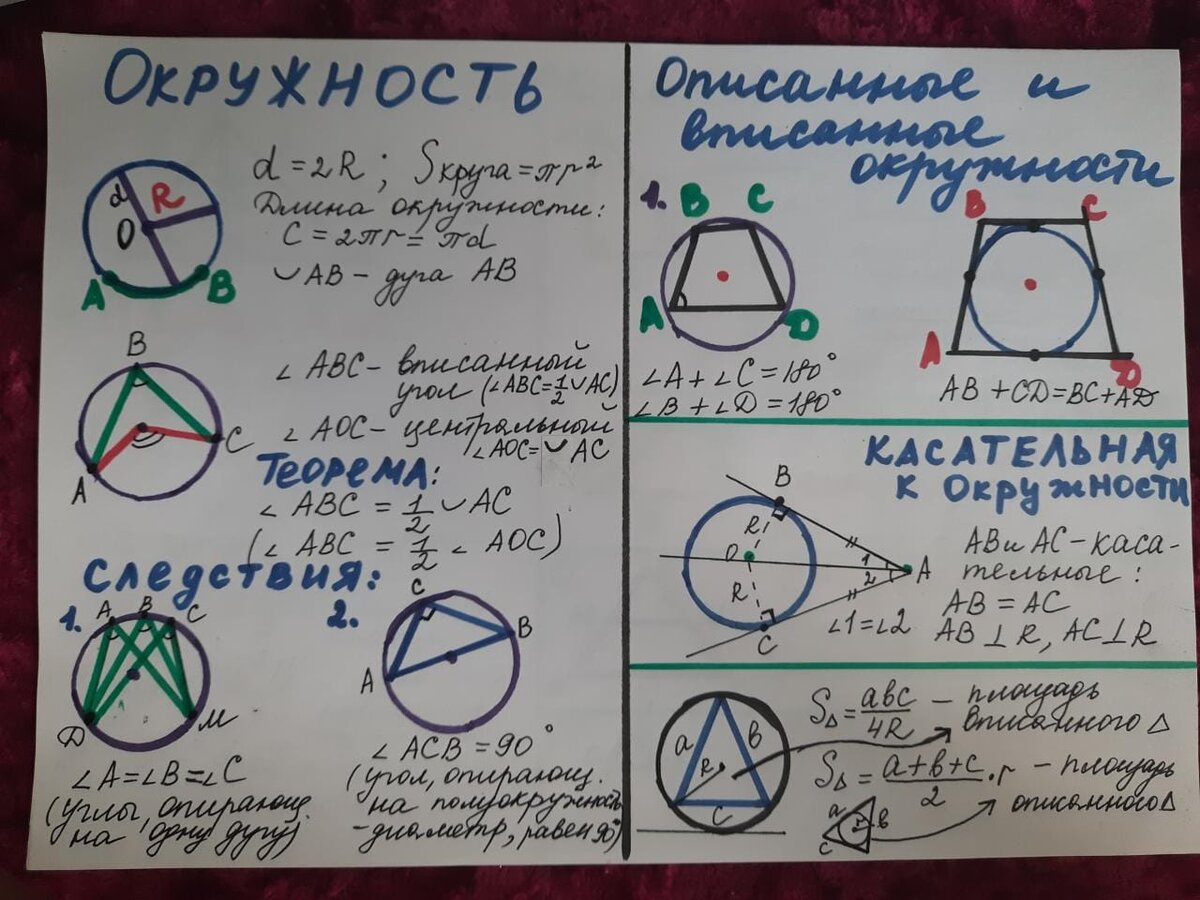 ОКРУЖНОСТЬ
d = 2R ; Sкруга = πr²
Длина окружности:
C = 2πr = πd
◡AB – дуга AB
d
R
O
A
B
B
A
C
∠ ABC – вписанный
угол (∠ABC = 1/2 ◡AC)
∠ AOC – центральный
∠AOC = ◡ AC
ТЕОРЕМА:
∠ ABC = 1/2 ◡ AC
(∠ ABC = 1/2 ∠ AOC)
СЛЕДСТВИЯ:
1.
A B C
D
M
∠A=∠B=∠C
(углы, опирающ.
на одну дугу)
2.
C
B
A
∠ ACB = 90°
(угол, опирающ.
на полуокружность
-диаметр, равен 90°)
Описанные и
вписанные
окружности
1.
B C
A
D
∠A + ∠C = 180°
∠B + ∠D = 180°
B
C
A
D
AB + CD = BC + AD
КАСАТЕЛЬНАЯ
К ОКРУЖНОСТИ
B
R
O
R
C
1
2
A
∠1=∠2
AB и AC – каса-
тельные:
AB = AC
AB ⊥ R, AC ⊥ R
a
b
R
c
S△ = abc/4R – площадь
вписанного △
S△ = a+b+c/2 · r – площадь
описанного △
a
b
r
c